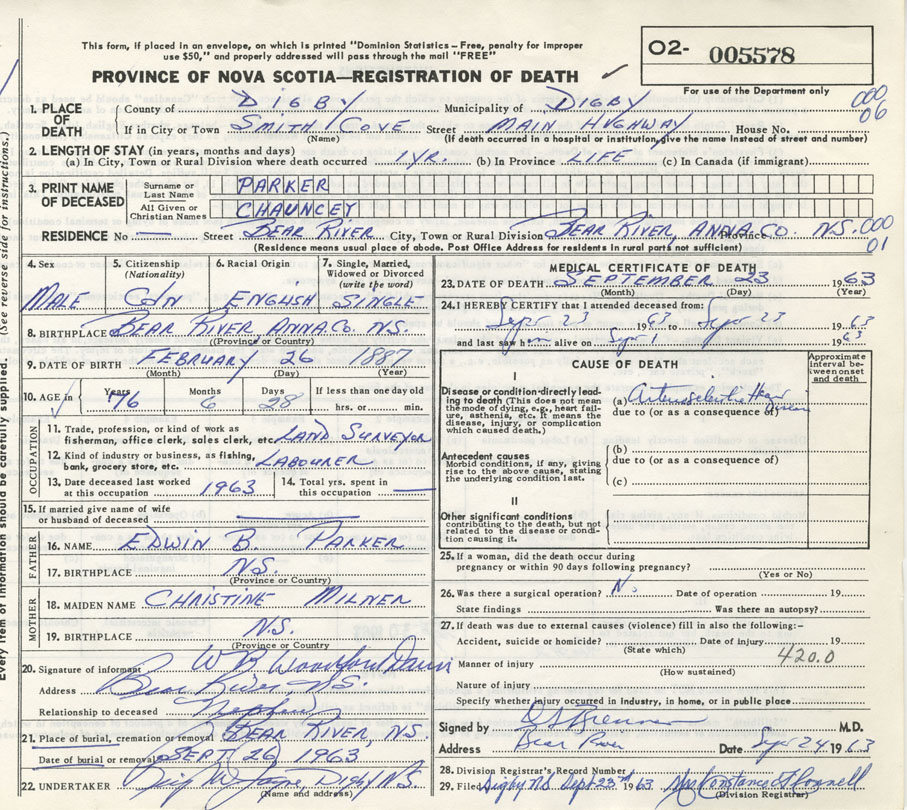 This form, if placed in an envelope, on which is printed "Dominion Statistics – Free, penalty for improper
use $50," and properly addressed will pass through the mail "FREE"
PROVINCE OF NOVA SCOTIA—REGISTRATION OF DEATH
O2- 005578
For use of the Department only
000
06
1. PLACE OF DEATH
County of DIGBY Municipality of DIGBY
If in City or Town SMITH COVE Street MAIN HIGHWAY House No.
(Name) (If death occurred in a hospital or institution, give the name instead of street and number)
2. LENGTH OF STAY (in years, months and days)
(a) In City, Town or Rural Division where death occurred 1 YR. (b) In Province LIFE (c) In Canada (if immigrant)
3. PRINT NAME OF DECEASED
Surname or Last Name PARKER
All Given or Christian Names CHAUNCEY
RESIDENCE No — Street BEAR RIVER City, Town or Rural Division BEAR RIVER, ANNA. CO. Province N.S. 000
01
(Residence means usual place of abode. Post Office Address for residents in rural parts not sufficient)
4. Sex MALE
5. Citizenship (Nationality) CDN
6. Racial Origin ENGLISH
7. Single, Married, Widowed or Divorced (write the word) SINGLE
8. BIRTHPLACE BEAR RIVER ANNA. CO. N.S.
(Province or Country)
9. DATE OF BIRTH FEBRUARY 26 1887
(Month) (Day) (Year)
10. AGE in Years 76 Months 6 Days 28 If less than one day old hrs. or min.
OCCUPATION
11. Trade, profession, or kind of work as fisherman, office clerk, sales clerk, etc. LAND SURVEYOR
12. Kind of industry or business, as fishing, bank, grocery store, etc. LABOURER
13. Date deceased last worked at this occupation 1963
14. Total yrs. spent in this occupation —
15. If married give name of wife or husband of deceased
FATHER
16. NAME EDWIN B. PARKER
17. BIRTHPLACE N.S.
(Province or Country)
MOTHER
18. MAIDEN NAME CHRISTINE MILNER
19. BIRTHPLACE N.S.
(Province or Country)
20. Signature of informant W B
Address Bear River, N.S.
Relationship to deceased Nephew
21. Place of burial, cremation or removal BEAR RIVER, N.S.
Date of burial or removal SEPT 26, 1963
22. UNDERTAKER Digby N.S.
(Name and address)
MEDICAL CERTIFICATE OF DEATH
23. DATE OF DEATH SEPTEMBER 23 1963
(Month) (Day) (Year)
24. I HEREBY CERTIFY that I attended deceased from:
Sept 23 1963 to Sept 23 1963
and last saw him alive on Sept 1 1963
CAUSE OF DEATH
Approximate interval between onset and death
I
Disease or condition directly leading to death (This does not mean the mode of dying, e.g., heart failure, asthenia, etc. It means the disease, injury, or complication which caused death.)
(a) Arteriosclerotic Heart Disease
due to (or as a consequence of)
Antecedent causes
Morbid conditions, if any, giving rise to the above cause, stating the underlying condition last.
(b)
due to (or as a consequence of)
(c)
II
Other significant conditions contributing to the death, but not related to the disease or condition causing it.
25. If a woman, did the death occur during pregnancy or within 90 days following pregnancy?
(Yes or No)
26. Was there a surgical operation? No Date of operation 19
State findings Was there an autopsy?
27. If death was due to external causes (violence) fill in also the following:-
Accident, suicide or homicide? Date of injury 19
(State which)
420.0
Manner of injury
(How sustained)
Nature of injury
Specify whether injury occurred in industry, in home, or in public place
Signed by M.D.
Address Bear River Date Sept 24 1963
28. Division Registrar's Record Number
29. Filed Digby N.S. Sept 23rd 1963 Mrs Constance
(Division Registrar)
(See reverse side for instructions.)
Every item of information should be carefully supplied.